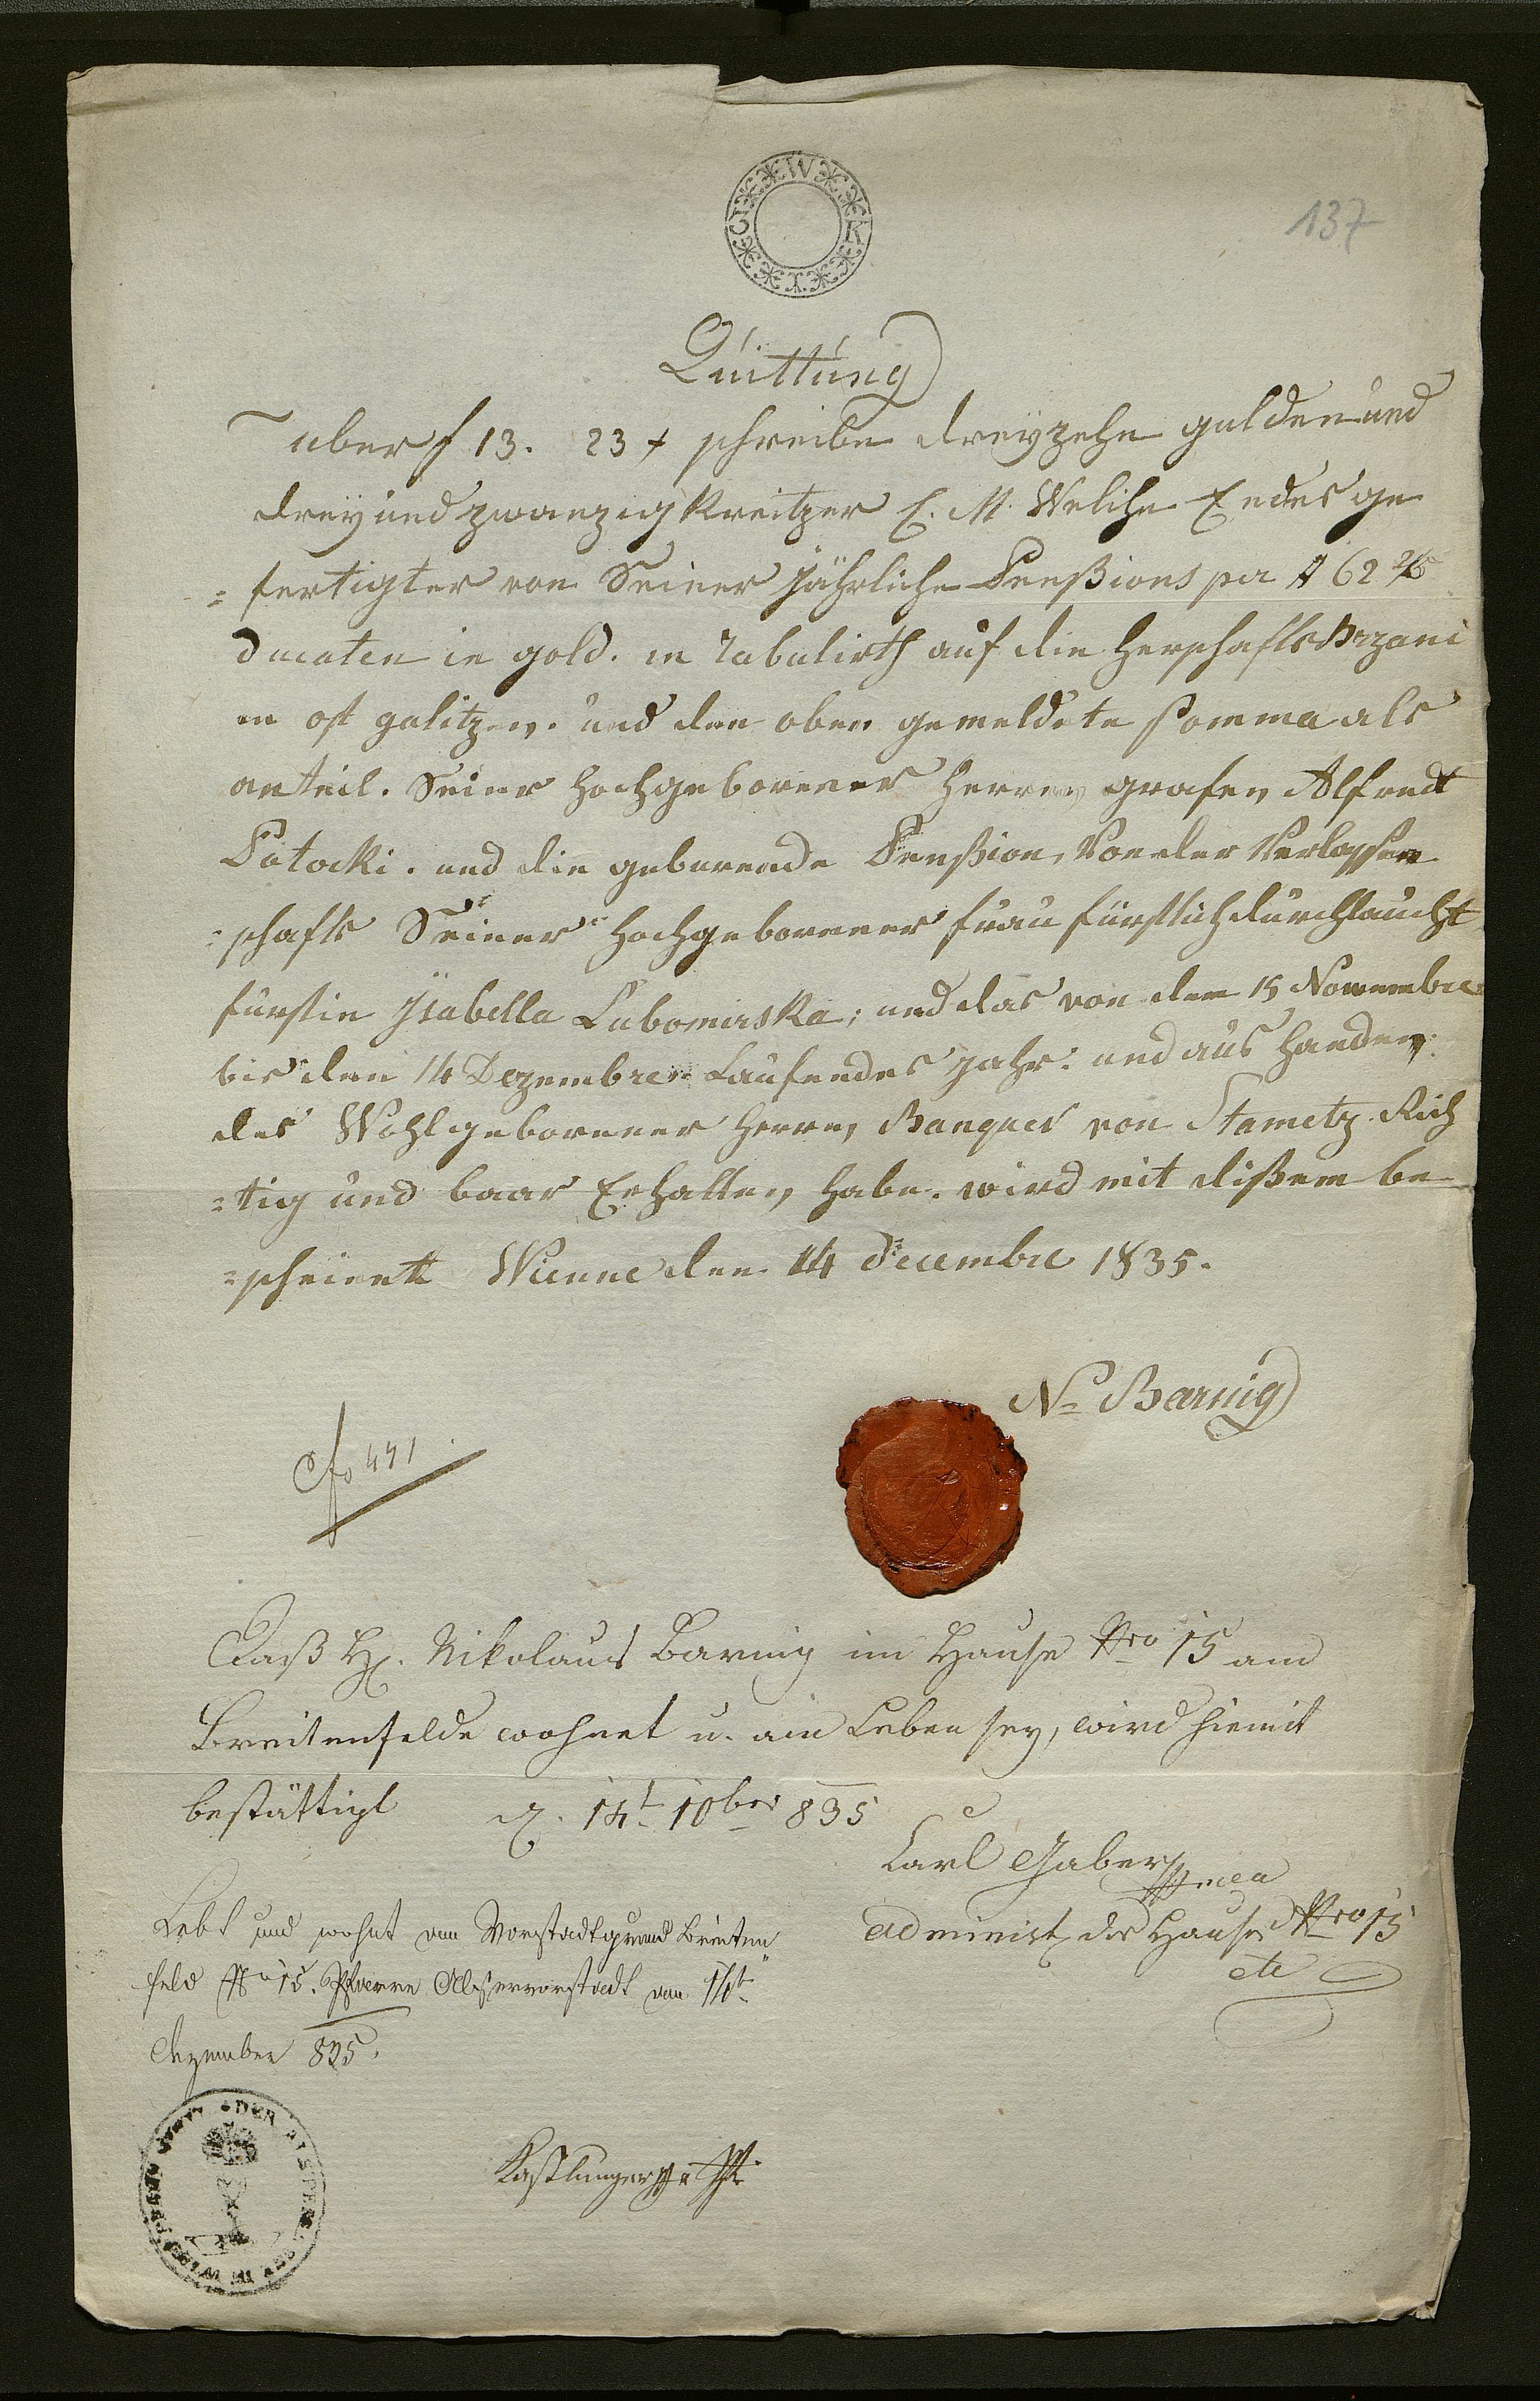 W K I C
137
Quittung
uber f 13. 23 x schreibe dreyzehn gulden und
dreyund zwanzig Kreitzer C. M. Welche Endes ge
=fertigter von Seiner jährliche Penßions per # 62 2/5
ducaten in gold. in Tabulirth auf die Herschafts Brzani
in ost galitzen. und den oben gemeldete somma als
anteil. Seiner Hochgeborener Herren grafen Alfredt
Potocki. und die geburende Penßion, Von der Verlassen
=schafts Seiner Hochgeborener frau fürstlich durchlaucht
furstin Ysabella Lubomirska; und das von dem 15 Nowembre
bis den 14 Dezembre Laufendes jahr: und aus Handen
des Wohlgeborener Herren Banquer von Stametz Rich
=tig und baar Erhalten habe. wird mit dißem be
=scheinet Wienne den 14 decembre 1835.
N= Barnig
fo 441.
Daß H. Nikolaus Barnig im Hause Nro 15 am
Breitenfelde wohnet u. am Leben sey, wird hiemit
bestättigt d. 14t 10ber 835
Carl Gaber
administ des Hauses Nro 15
etc
Lebt und wohnt am Vorstadtgrund Breiten
feld No 15. Pfarre Alservorstadt am 14t
Dezember 835.
Kastlunger